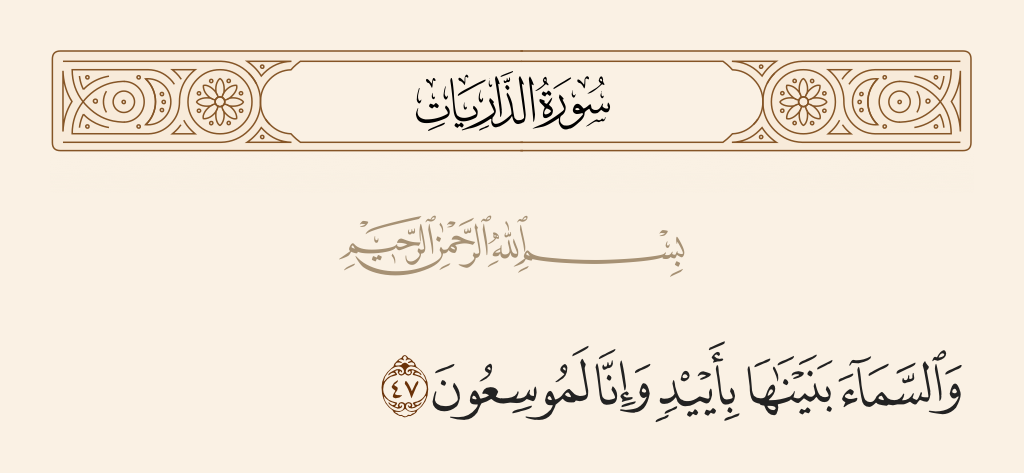 سُورَةُ الذَّارِيَاتِ
بِسْمِ ٱللَّهِ ٱلرَّحْمَٰنِ ٱلرَّحِيمِ
وَٱلسَّمَآءَ بَنَيْنَٰهَا بِأَيْي۟دٍ وَإِنَّا لَمُوسِعُونَ ٤٧